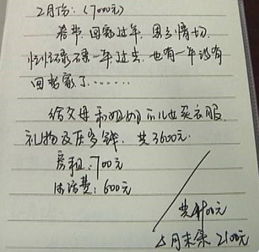 2月份：（7000元）
春节 回家过年，思乡情切，
忙忙碌碌一年过去，也有一年没有
回老家了……
给父母和姐姐 买衣服、
礼物及压岁钱，共3600元。
房租：700元
生活费：600元
共4900元
2月末余2100元